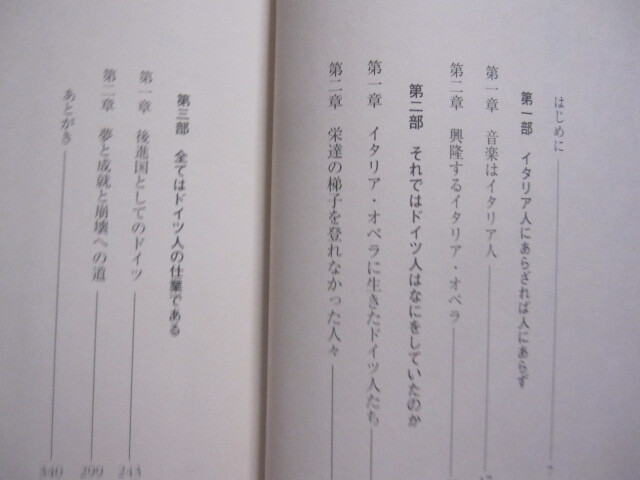 はじめに
第一部 イタリア人にあらざれば人にあらず
第一章 音楽はイタリア人
第二章 興隆するイタリア・オペラ
第二部 それではドイツ人はなにをしていたのか
第一章 イタリア・オペラに生きたドイツ人たち
第二章 栄達の梯子を登れなかった人々
第三部 全てはドイツ人の仕業である
第一章 後進国としてのドイツ 243
第二章 夢と成就と崩壊への道 299
あとがき 340